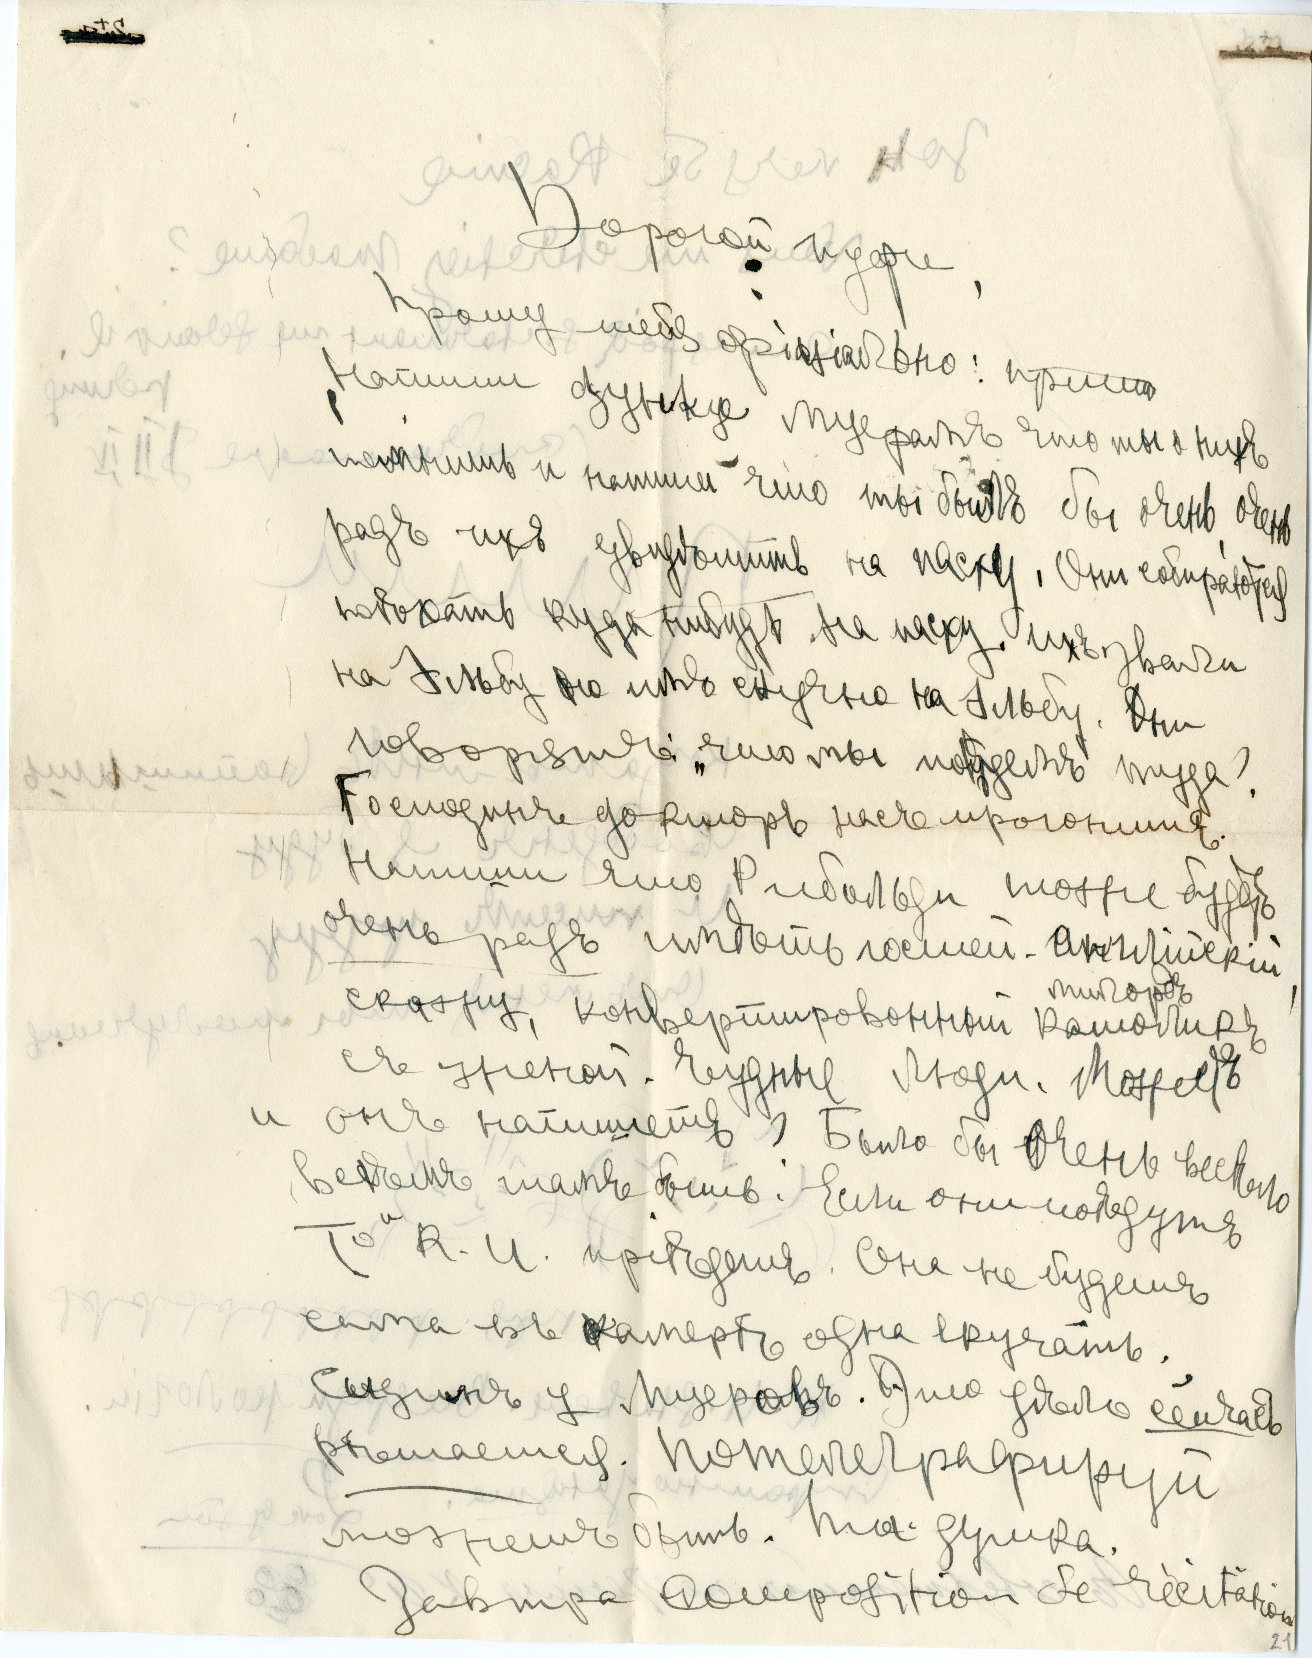 Дорогой пуфи,
Прошу тебя офиціально:
Напиши Муерамъ что ты о нихъ
помнишь и напиши что ты былъ бы очень, очень
радъ ихъ увидѣть на пасху. Они собираются
поѣхать куда нибудь на пасху. Ихъ звали
на Эльбу но имъ скучно на Эльбу. Они
говорятъ: „что мы поѣдемъ туда?
Господинъ докторъ насъ прогонитъ.
Напиши что Рибольди тоже будетъ
очень радъ имѣть гостей. Английскій,
скажу, конвертированный католикъ
милордъ
съ женой. Чудные люди. Можетъ
и онъ напишетъ? Было бы очень весело
всѣмъ тамъ быть. Если они поѣдутъ
То и К. И. пріѣдетъ. Она не будетъ
сама въ камерѣ одна скучать.
Сидимъ у Муеровъ. Это дѣло сейчасъ
рѣшается. Потелеграфируй
можетъ быть. Ты душка.
Завтра Composition de récitation
21